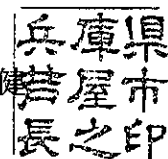 兵庫県
芦屋市
長之印
健